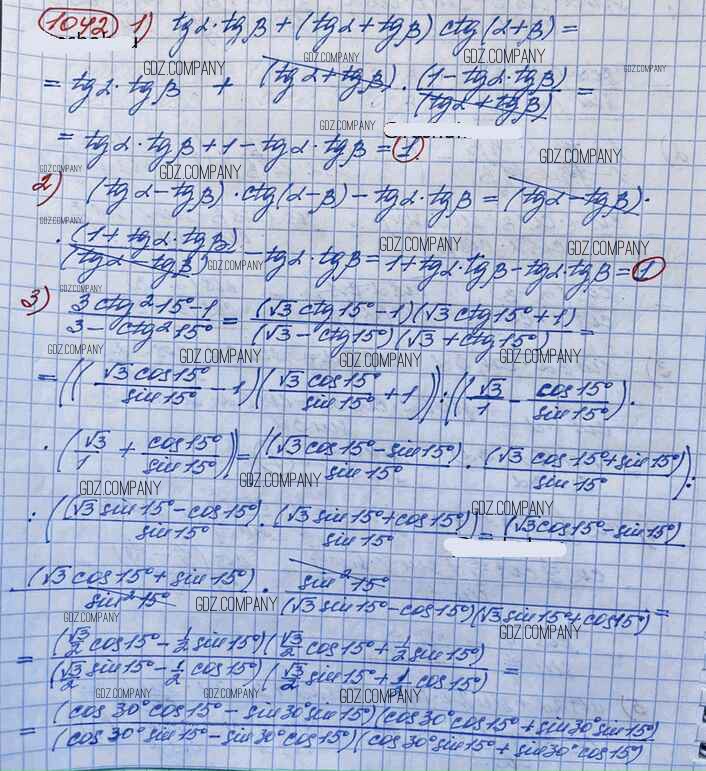 1042 1) tgα·tgβ + (tgα + tgβ) ctg(α+β) =
= tgα·tgβ + (tgα + tgβ) · (1 - tgα·tgβ)/(tgα + tgβ) =
= tgα·tgβ + 1 - tgα·tgβ = 1.
2) (tgα - tgβ)·ctg(α-β) - tgα·tgβ = (tgα - tgβ)·
· (1 + tgα·tgβ)/(tgα - tgβ) - tgα·tgβ = 1 + tgα·tgβ - tgα·tgβ = 1
3) (3ctg²15° - 1)/(3 - ctg²15°) = (√3 ctg15° - 1)(√3 ctg15° + 1)/(√3 - ctg15°)(√3 + ctg15°) =
= ((√3 cos15°/sin15° - 1)(√3 cos15°/sin15° + 1)) : ((√3/1 - cos15°/sin15°)·
· (√3/1 + cos15°/sin15°)) = ((√3 cos15° - sin15°)/sin15° · (√3 cos15° + sin15°)/sin15°) :
: ((√3 sin15° - cos15°)/sin15° · (√3 sin15° + cos15°)/sin15°) = (√3 cos15° - sin15°)
(√3 cos15° + sin15°)/sin²15° · sin²15°/(√3 sin15° - cos15°)(√3 sin15° + cos15°) =
= (√3/2 cos15° - 1/2 sin15°)(√3/2 cos15° + 1/2 sin15°)/(√3/2 sin15° - 1/2 cos15°)(√3/2 sin15° + 1/2 cos15°) =
= (cos30°cos15° - sin30°sin15°)(cos30°cos15° + sin30°sin15°)/(cos30°sin15° - sin30°cos15°)(cos30°sin15° + sin30°cos15°)
GDZ.COMPANY